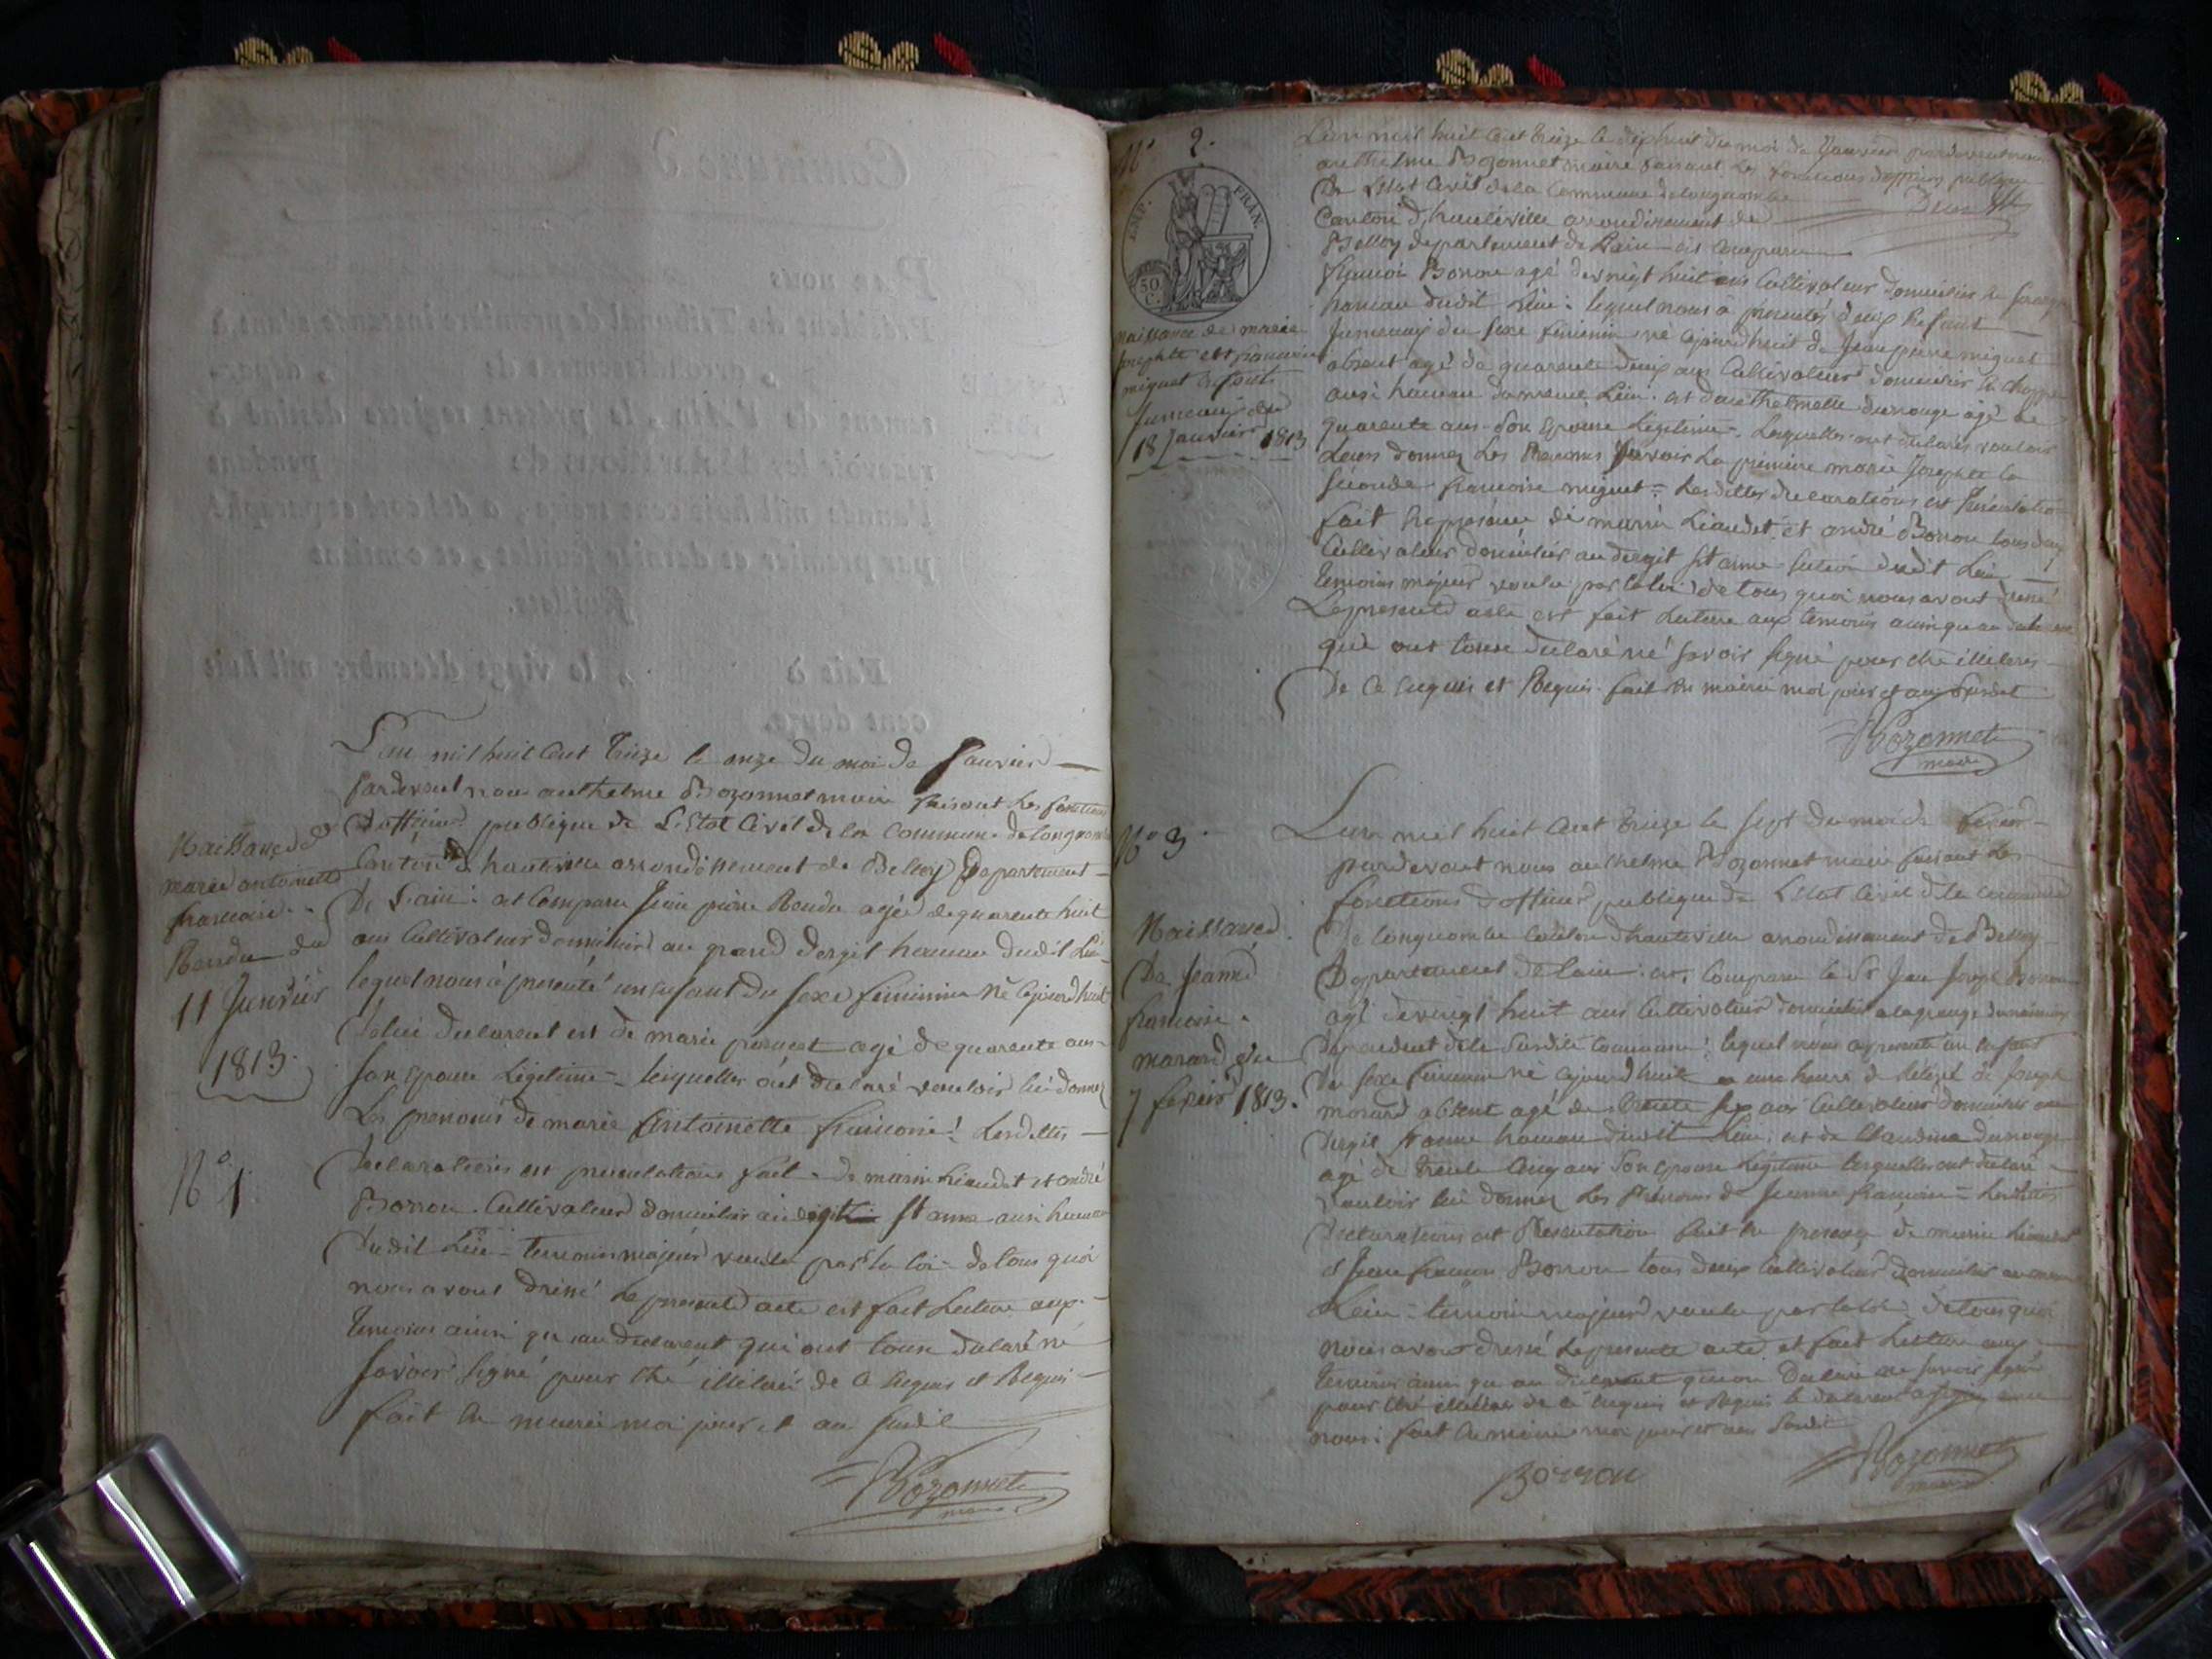 Naissance de
marie antoinette
francoise
Bendu du
11 Janvier
1813.
N° 1
L'an mil huit Cent treize le onze du moi de Janvier
pardevant nou anthelme Bozonnet maire faisant les fonctions
d'officier publique de L'Etat Civil de la Commune de longecombe
Canton d hauteville arrondissement de Belley Departement
De L'ain: est Comparu Jean pierre Bendu agée de quarente huit
ans Cultivateur domicilier au grand dergit hameau dudit Lieu
lequel nous à presenté un enfant du Sexe feminin né cejourd huit
de lui declarent et de marie agé de quarente ans
son Epouse Legitime - lesquelles ont declaré vouloir lui donner
Les prenoms de marie Antoinette francoise: Lesdittes
declarations et presentations fait de marin Liaudet et andré
Borron Cultivateur domicilier au dergit St anne ausi hameau
dudit Lieu - temoins majeur voulu par la loi - de tous quoi
nous avont dressé le presente acte et fait Lecture aux
temoins ainsi qu au declarent qui ont tousse declaré né
savoir signé pour etré illetéré de Ce enquis et Requis
fait en mairie moi jour et an susdit
Bozonnet
maire
N° 2.
EMP. FRAN.
50 C.
naissance de marie
Josephte et francoise
miguet Enfants
Jumeaux du
18 Janvier 1813
L'an mil huit Cent treize le dix huit du moi de Janvier pardevant nou
anthelme Bozonnet maire faisant les fonctions d'officier publique
De L'Etat Civil de la Commune de longecombe
Canton d'hauteville arrondissement de
Belley departement de L'ain est Comparu
françoi Borron agé de vingt huit ans Cultivateur domicilier
hameau dudit Lieu: lequel nous à presentés deux Enfant
Jumeaux du Sexe feminin né cejourd huit de Jean pierre miguet
absent agé de quarente deux ans Cultivateur domicilier
ausi hameau du meme Lieu. et d'anthelmette dunouge agé de
quarente ans son Epouse Legitime - Lesquelles ont declarés vouloir
Leurs donner les Prenoms Savoir la premiere marie Josephte la
seconde francoise miguet - Lesdittes declarations et Presentation
fait En presence de marin Liaudet et andré Borron tous deux
Cultivateur domicilier au dergit St anne dudit Lieu
temoins majeur voulu par la loi de tous quoi nous avont dressé
Le presente acte et fait Lecture aux temoins ainsi qu au declarent
qui ont tousse declaré né savoir signé pour etre illeteres
De Ce enquis et Requis fait En mairie moi jour et an susdit
Bozonnet
maire
N° 3
Naissance
De Jeanne
francoise
morard du
7 fevrier 1813.
L'an mil huit Cent treize le sept du moi de fevrier
pardevant nous anthelme Bozonnet maire faisant les
fonctions d'officier publique de L'Etat Civil de la commune
De longecombe Canton d'hauteville arrondissement de Belley
Departement de L'ain: est Comparu le Sr Jean Joseph Borron
agé de vingt huit ans Cultivateur domicilier a la grange
dependent de la susdite Commune: lequel nous a presenté un enfant
du Sexe feminin né cejourd huit a une heure de de Joseph
morard absent agé de trente six ans Cultivateur domicilier au
dergit St anne hameau dudit Lieu. et de Claudine dunouge
agé de trente Cinq ans son Epouse Legitime lesquelles ont declaré
vouloir lui donner les Prenoms de Jeanne francoise - Lesdittes
declarations et Presentation fait En presence de marin Liaudet
et Jean françois Borron tous deux Cultivateur domicilier au meme
Lieu - temoin majeur voulu par la loi. de tous quoi
nous avont dressé le presente acte et fait Lecture aux
temoins ainsi qu au declarent qui on declaré ne savoir signé
pour etré illetéré de Ce enquis et Requis le declarent a signé avec
nous: fait En mairie moi jour et an susdit
Borron
Bozonnet
maire